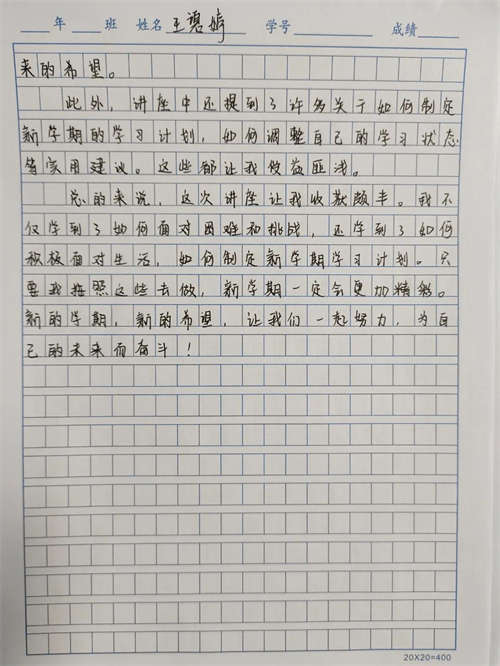 年 班 姓名 王 婷 学号 成绩
来的希望。
此外，讲座中还提到了许多关于如何制定
新学期的学习计划，如何调整自己的学习状态
等实用建议。这些都让我收益匪浅。
总的来说，这次讲座让我收获颇丰。我不
仅学到了如何面对困难和挑战，还学到了如何
积极面对生活，如何制定新学期学习计划。只
要我按照这些去做，新学期一定会更加精彩。
新的学期，新的希望，让我们一起努力，为自
己的未来而奋斗！
20X20=400